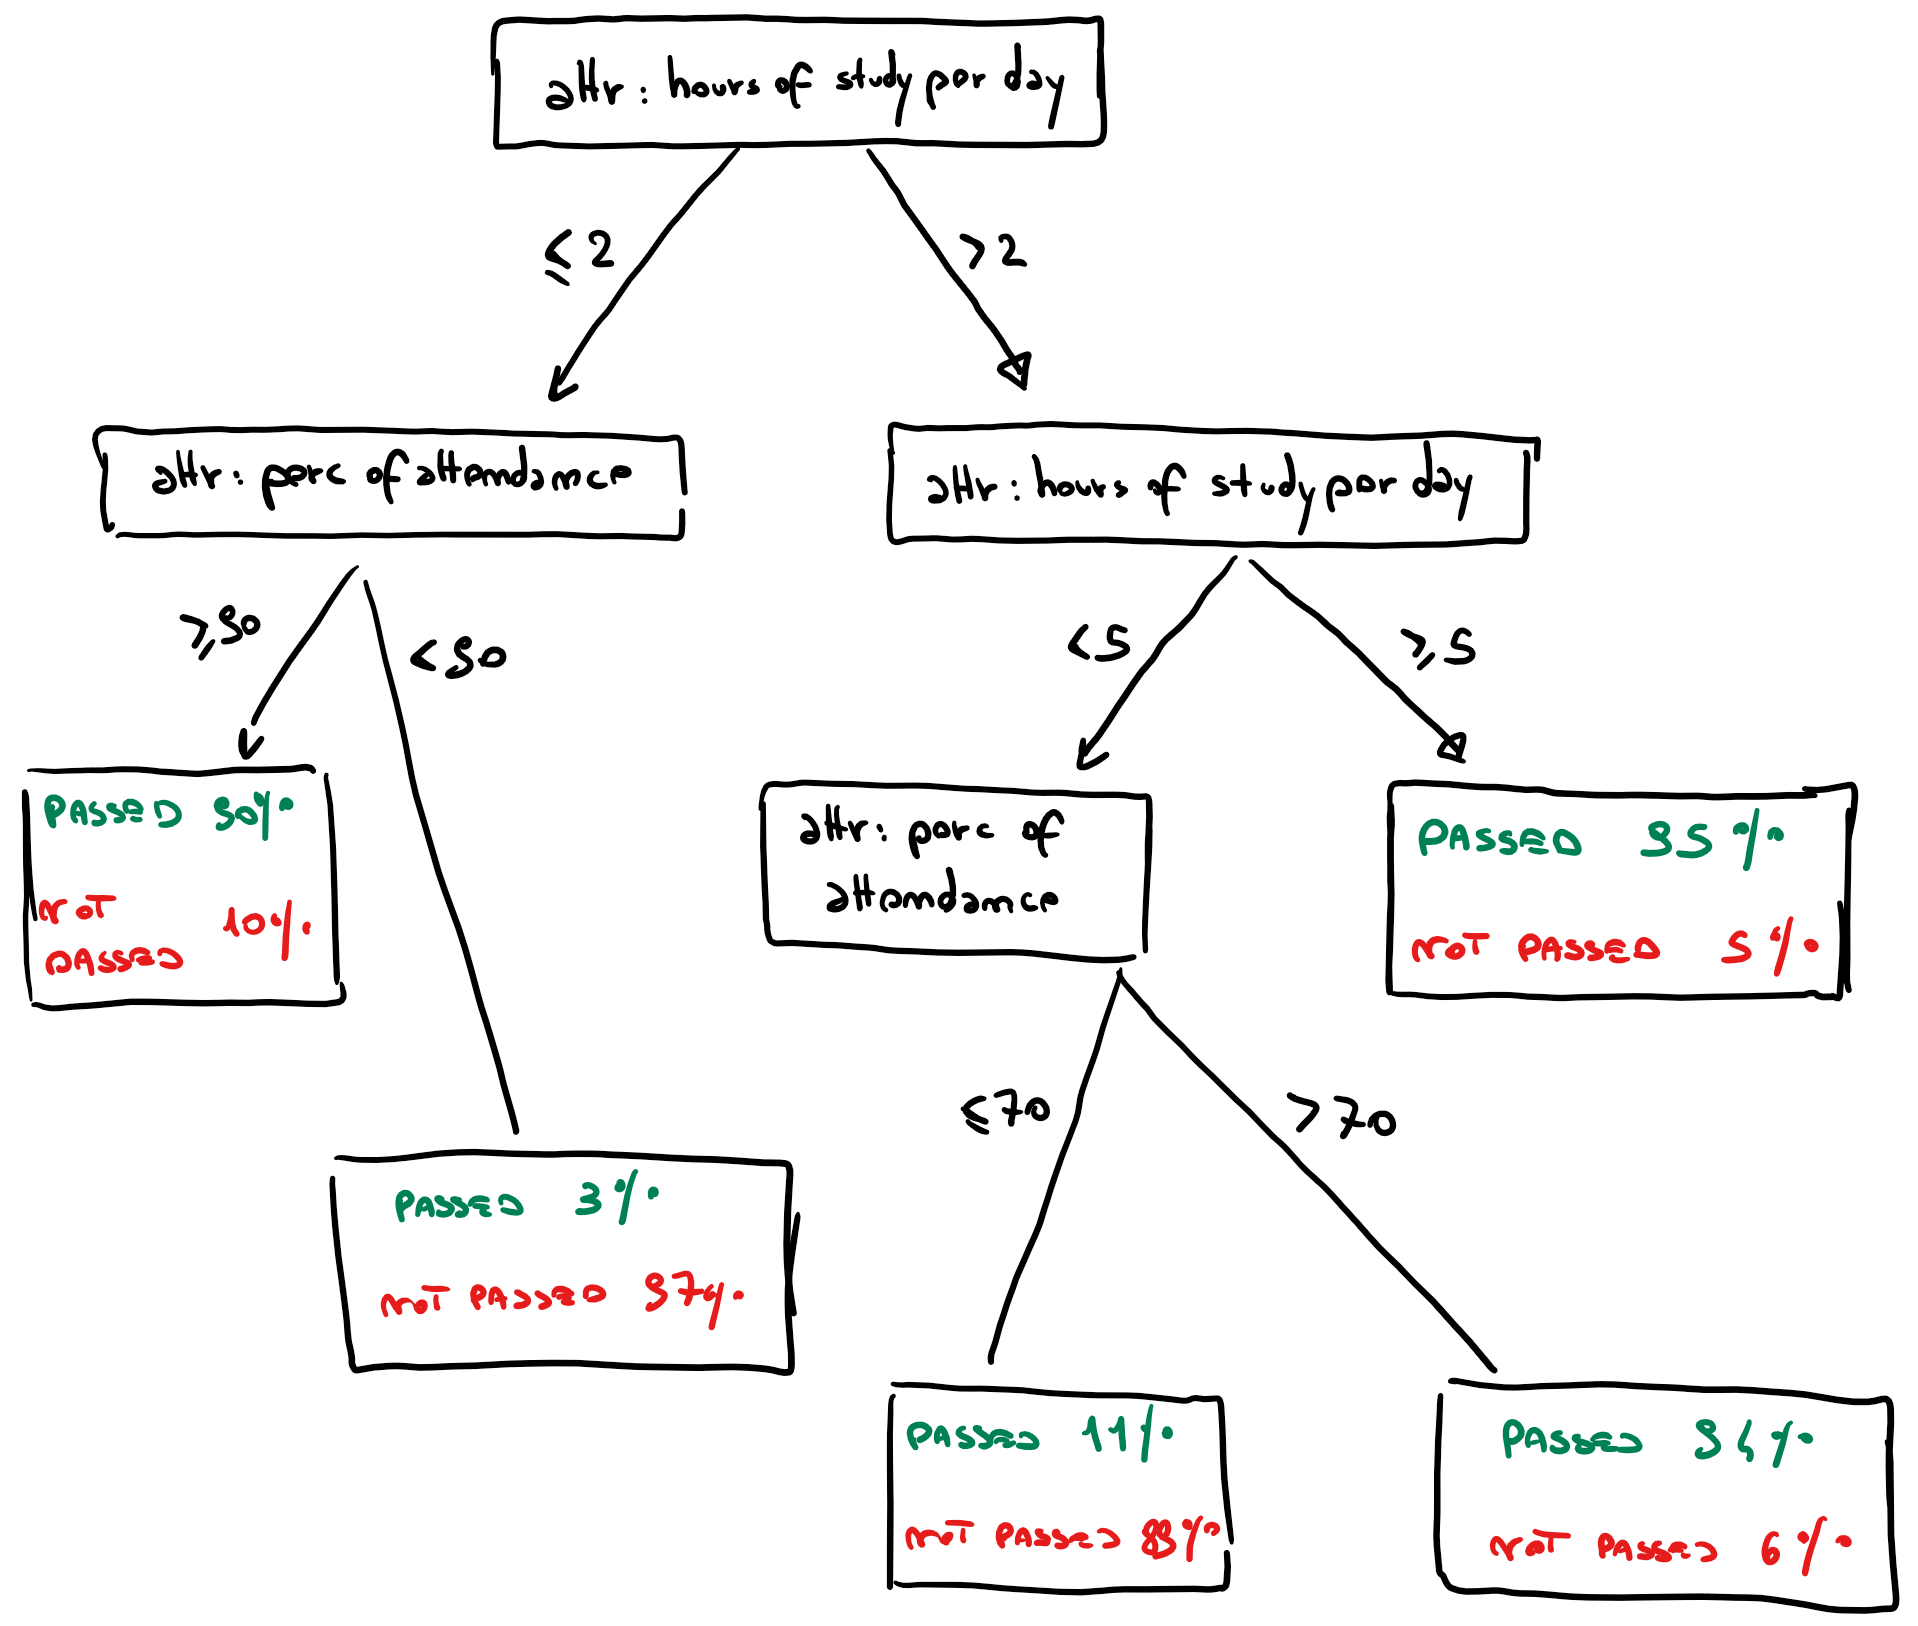 attr: hours of study per day
≤2
>2
attr: perc of attendance
attr: hours of study per day
≥90
<90
<5
≥5
PASSED 90%
NOT
PASSED
10%
attr: perc of
attendance
PASSED 95%
NOT PASSED 5%
≤70
>70
PASSED 3%
NOT PASSED 97%
PASSED 11%
NOT PASSED 89%
PASSED 94%
NOT PASSED 6%